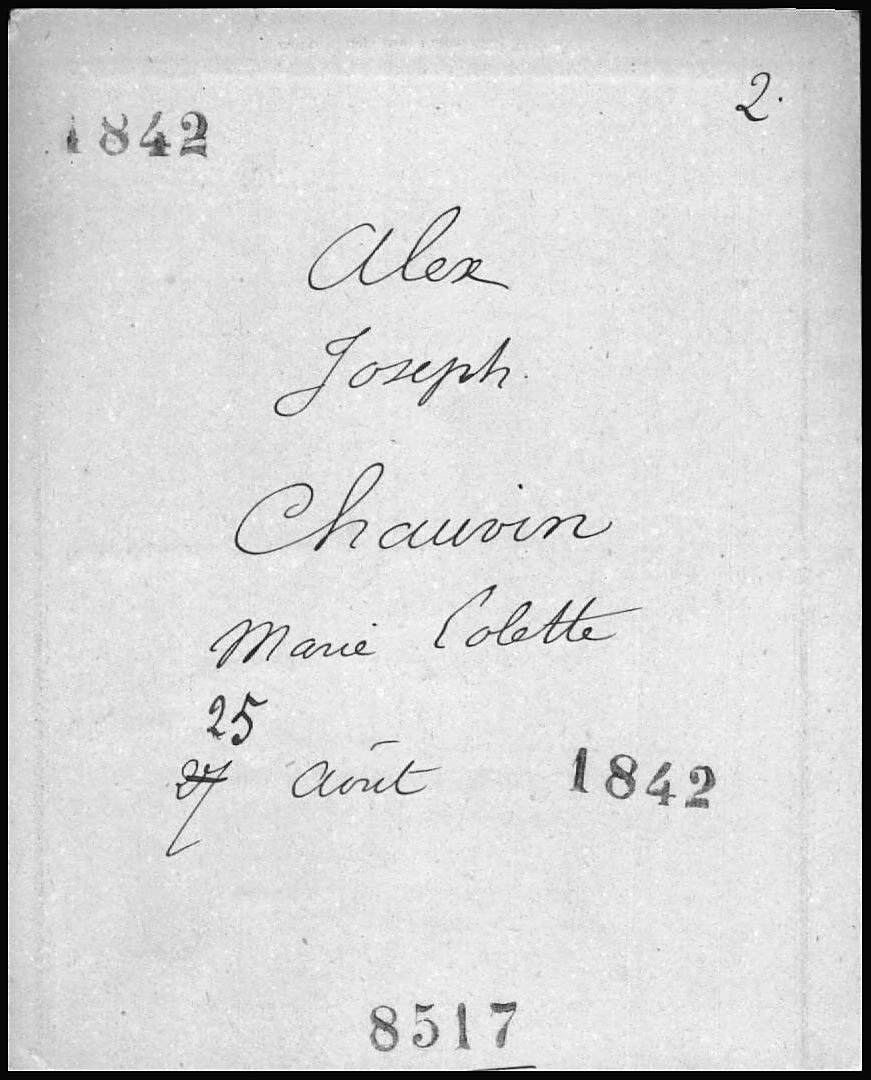 2.
1842
Alex
Joseph.
Chauvin
Marie Colette
25
27 Août 1842
8517